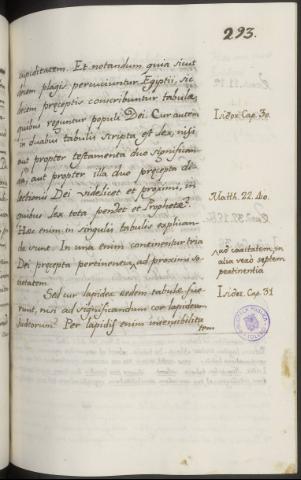 293.
cupiditatem. Et notandum quia sicut
decem plagis percutiuntur Egyptii, sic
decem preceptis conscribuntur tabulæ,
quibus reguntur populi Dei. Cur autem
in duabus tabulis scripta est Lex, nisi
aut propter testamenta duo significan-
da, aut propter illa duo precepta di-
lectionis Dei videlicet et proximi, in
quibus Lex tota pendet et Prophetæ?
Hæc enim in singulis tabulis explican-
da sunt. In una enim continentur tria
Dei precepta pertinentia, ad proximi so-
cietatem.
Sed cur lapideæ eædem tabulæ fue-
runt, nisi ad significandum cor lapideum
Judeorum? Per lapidis enim insensibilita-
tem
Isidor. Cap. 30
Matth. 22. 40.
ad caritatem, in
alia vero septem
pertinentia
Isidor. Cap. 31